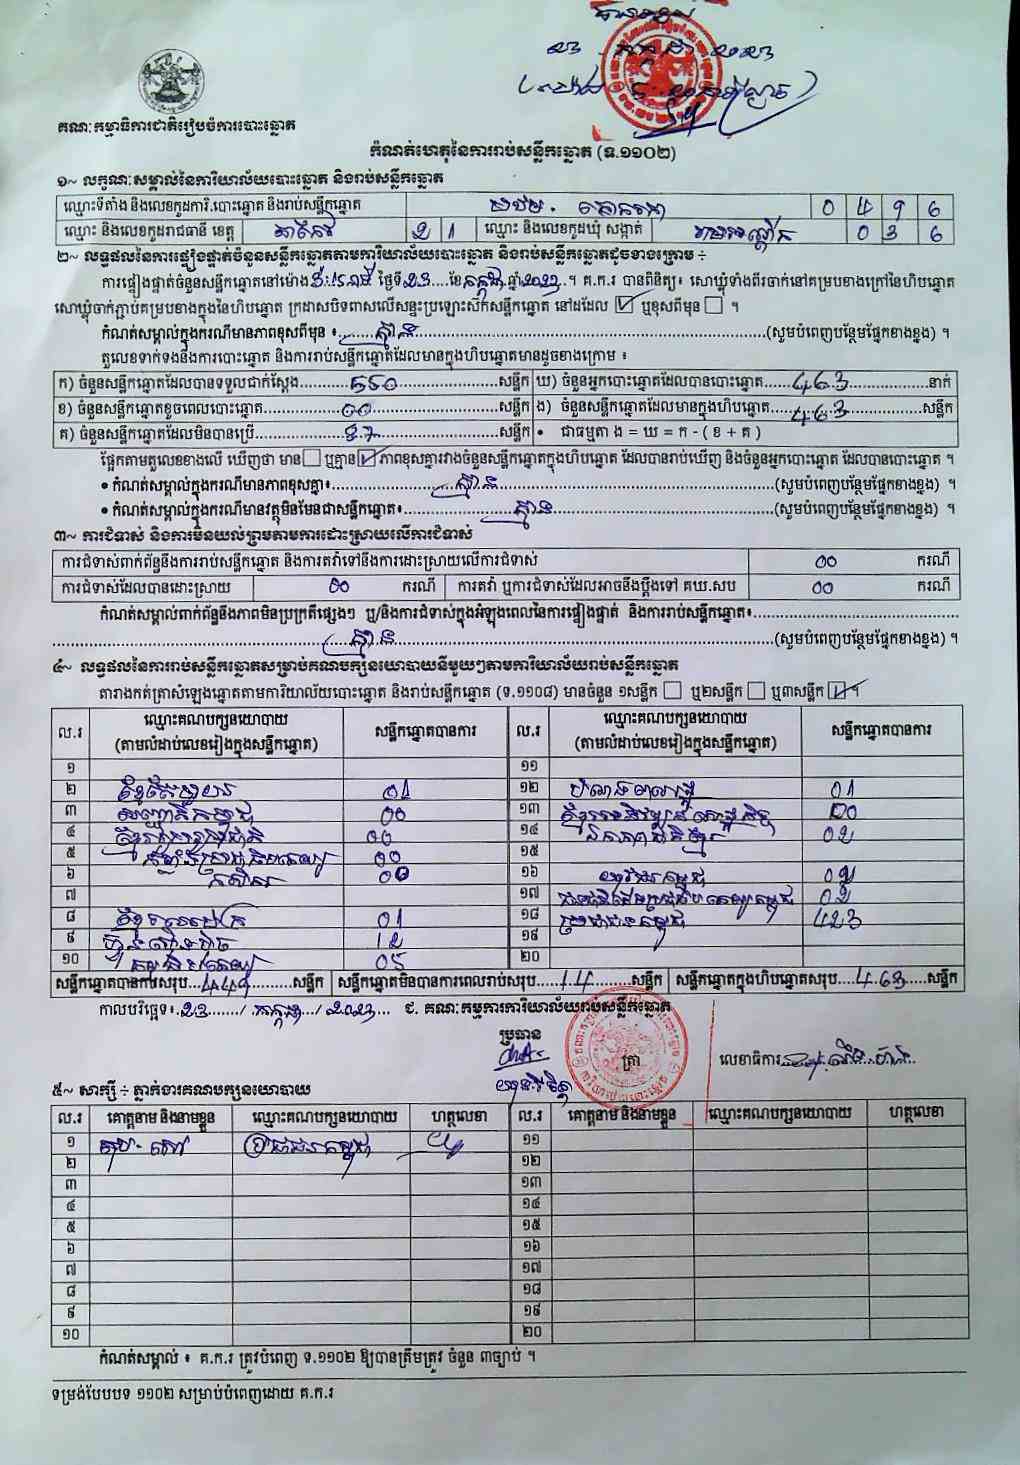 ២៣ កក្កដា ២០២៣
គណៈកម្មាធិការជាតិរៀបចំការបោះឆ្នោត
កំណត់ហេតុនៃការរាប់សន្លឹកឆ្នោត (ទ.១១០២)
១~ លក្ខណៈសម្គាល់នៃការិយាល័យបោះឆ្នោត និងរាប់សន្លឹកឆ្នោត
ឈ្មោះទីតាំង និងលេខកូដការិ.បោះឆ្នោត និងរាប់សន្លឹកឆ្នោត 0 4 9 6
ឈ្មោះ និងលេខកូដរាជធានី ខេត្ត តាកែវ 2 1 ឈ្មោះ និងលេខកូដឃុំ សង្កាត់ រមេញ 0 3 6
២~ លទ្ធផលនៃការផ្ទៀងផ្ទាត់ចំនួនសន្លឹកឆ្នោតតាមការិយាល័យបោះឆ្នោត និងរាប់សន្លឹកឆ្នោតដូចខាងក្រោម ÷
ការផ្ទៀងផ្ទាត់ចំនួនសន្លឹកឆ្នោតនៅម៉ោង ថ្ងៃទី 23 ខែ កក្កដា ឆ្នាំ 2023 ។ គ.ក.រ បានពិនិត្យ៖ សោឃ្លុំទាំងពីរចាក់នៅគម្របខាងក្រៅនៃហិបឆ្នោត
សោឃ្លុំចាក់ភ្ជាប់គម្របខាងក្នុងនៃហិបឆ្នោត ក្រដាសបិទពាសលើសន្ទះប្រឡោះស៊កសន្លឹកឆ្នោត នៅដដែល ☑ ឬខុសពីមុន ☐ ។
កំណត់សម្គាល់ក្នុងករណីមានភាពខុសពីមុន ៖ គ្មាន (សូមបំពេញបន្ថែមផ្នែកខាងខ្នង) ។
តួលេខទាក់ទងនឹងការបោះឆ្នោត និងការរាប់សន្លឹកឆ្នោតដែលមានក្នុងហិបឆ្នោតមានដូចខាងក្រោម ៖
ក) ចំនួនសន្លឹកឆ្នោតដែលបានទទួលជាក់ស្ដែង 550 សន្លឹក ឃ) ចំនួនអ្នកបោះឆ្នោតដែលបានបោះឆ្នោត 463 នាក់
ខ) ចំនួនសន្លឹកឆ្នោតខូចពេលបោះឆ្នោត 00 សន្លឹក ង) ចំនួនសន្លឹកឆ្នោតដែលមានក្នុងហិបឆ្នោត 463 សន្លឹក
គ) ចំនួនសន្លឹកឆ្នោតដែលមិនបានប្រើ 87 សន្លឹក • ជាធម្មតា ង = ឃ = ក - ( ខ + គ )
ផ្អែកតាមតួលេខខាងលើ ឃើញថា មាន ☐ ឬគ្មាន ☑ ភាពខុសគ្នារវាងចំនួនសន្លឹកឆ្នោតក្នុងហិបឆ្នោត ដែលបានរាប់ឃើញ និងចំនួនអ្នកបោះឆ្នោត ដែលបានបោះឆ្នោត ។
• កំណត់សម្គាល់ក្នុងករណីមានភាពខុសគ្នា៖ គ្មាន (សូមបំពេញបន្ថែមផ្នែកខាងខ្នង) ។
• កំណត់សម្គាល់ក្នុងករណីមានវត្ថុមិនមែនជាសន្លឹកឆ្នោត៖ គ្មាន (សូមបំពេញបន្ថែមផ្នែកខាងខ្នង) ។
៣~ ការជំទាស់ និងការមិនយល់ព្រមតាមការដោះស្រាយលើការជំទាស់
ការជំទាស់ពាក់ព័ន្ធនឹងការរាប់សន្លឹកឆ្នោត និងការតវ៉ាទៅនឹងការដោះស្រាយលើការជំទាស់ 00 ករណី
ការជំទាស់ដែលបានដោះស្រាយ 00 ករណី ការតវ៉ា ឬការជំទាស់ដែលអាចនឹងប្ដឹងទៅ គឃ.សប 00 ករណី
កំណត់សម្គាល់ពាក់ព័ន្ធនឹងភាពមិនប្រក្រតីផ្សេងៗ ឬ/និងការជំទាស់ក្នុងអំឡុងពេលនៃការផ្ទៀងផ្ទាត់ និងការរាប់សន្លឹកឆ្នោត៖
គ្មាន (សូមបំពេញបន្ថែមផ្នែកខាងខ្នង) ។
៤~ លទ្ធផលនៃការរាប់សន្លឹកឆ្នោតសម្រាប់គណបក្សនយោបាយនីមួយៗតាមការិយាល័យរាប់សន្លឹកឆ្នោត
តារាងកត់ត្រាសំឡេងឆ្នោតតាមការិយាល័យបោះឆ្នោត និងរាប់សន្លឹកឆ្នោត (ទ.១១០៨) មានចំនួន ១សន្លឹក ☐ ឬ២សន្លឹក ☐ ឬ៣សន្លឹក ☑ ។
ល.រ ឈ្មោះគណបក្សនយោបាយ (តាមលំដាប់លេខរៀងក្នុងសន្លឹកឆ្នោត) សន្លឹកឆ្នោតបានការ ល.រ ឈ្មោះគណបក្សនយោបាយ (តាមលំដាប់លេខរៀងក្នុងសន្លឹកឆ្នោត) សន្លឹកឆ្នោតបានការ
១ ១១
២ 01 ១២ 01
៣ 00 ១៣ 00
៤ 00 ១៤ 02
៥ 00 ១៥
៦ 00 ១៦ 02
៧ ១៧ 02
៨ 01 ១៨ ប្រជាជនកម្ពុជា 423
៩ ហ៊្វុនស៊ិនប៉ិច 12 ១៩
១០ 05 ២០
សន្លឹកឆ្នោតបានការសរុប 449 សន្លឹក សន្លឹកឆ្នោតមិនបានការពេលរាប់សរុប 14 សន្លឹក សន្លឹកឆ្នោតក្នុងហិបឆ្នោតសរុប 463 សន្លឹក
កាលបរិច្ឆេទ៖ 23 / កក្កដា / 2023 ជ. គណៈកម្មការការិយាល័យរាប់សន្លឹកឆ្នោត
ប្រធាន
ត្រា លេខាធិការ
៥~ សាក្សី ÷ ភ្នាក់ងារគណបក្សនយោបាយ
ល.រ គោត្តនាម និងនាមខ្លួន ឈ្មោះគណបក្សនយោបាយ ហត្ថលេខា ល.រ គោត្តនាម និងនាមខ្លួន ឈ្មោះគណបក្សនយោបាយ ហត្ថលេខា
១ ប្រជាជនកម្ពុជា ១១
២ ១២
៣ ១៣
៤ ១៤
៥ ១៥
៦ ១៦
៧ ១៧
៨ ១៨
៩ ១៩
១០ ២០
កំណត់សម្គាល់ ៖ គ.ក.រ ត្រូវបំពេញ ទ.១១០២ ឱ្យបានត្រឹមត្រូវ ចំនួន ៣ច្បាប់ ។
ទម្រង់បែបបទ ១១០២ សម្រាប់បំពេញដោយ គ.ក.រ